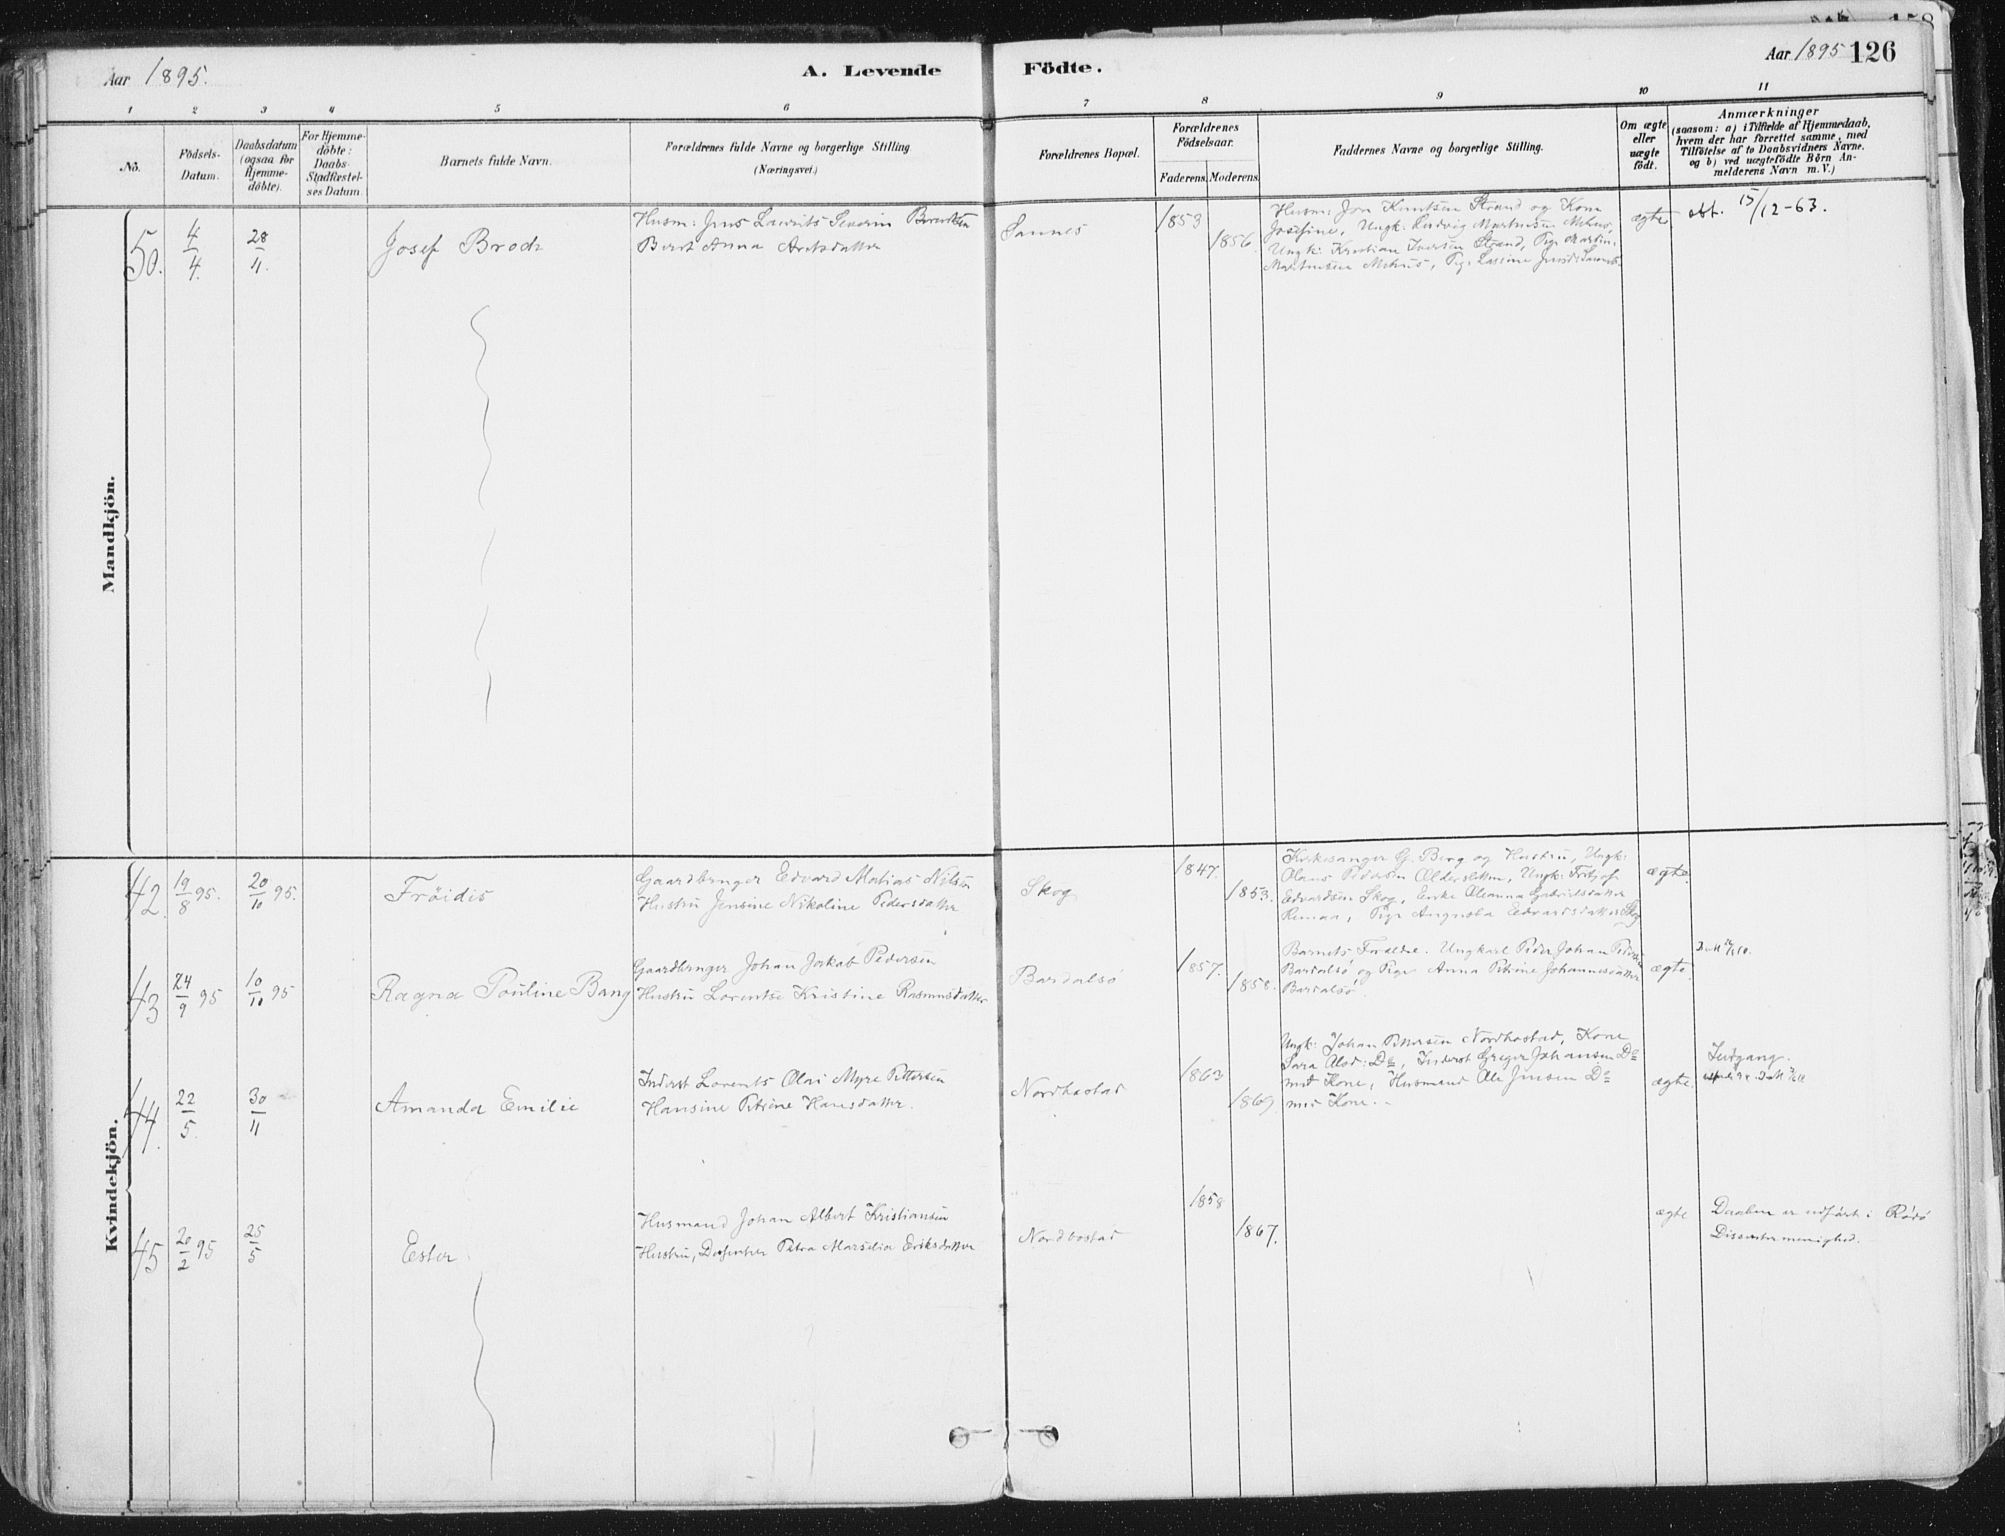 Aar 1895.
A. Levende
Födte.
Aar 1895 126
1 2 3 4 5 6 7 8 9 10 11
No.
Födsels-
Datum.
Daabsdatum
(ogsaa for
Hjemme-
döbte).
For Hjemme-
döbte:
Daabs-
Stadfæstel-
ses Datum.
Barnets fulde Navn.
Forældrenes fulde Navne og borgerlige Stilling
(Næringsvei.)
Forældrenes Bopæl.
Forældrenes
Födselsaar.
Faderens. Moderens.
Faddernes Navne og borgerlige Stilling.
Om ægte
eller
uægte
födt.
Anmærkninger
(saasom: a) i Tilfælde af Hjemmedaab,
hvem der har forrettet samme, med
Tilföielse af to Daabsvidners Navne,
og b) ved uægtefödte Börn An-
melderens Navn m. V.)
Mandkjön.
50. 4/4. 28/11.
Josef Broch
Husm: Jens Laurits Severin Berentsen
Berit Anna Arntsdatter
Sannes
1853
1856.
Husm: Jon Knutsen Strand og Kone
Josefine, Ungk: Ludvig Martinsen Mehus,
Ungk: Kristian Iversen Strand, Pige Martin.
Martinsen Mehus, Pige Lassine
ægte
obt. 15/12-63.
Kvindekjön.
42. 19/8 95. 20/10 95.
Fröidis
Gaardbruger Edvard Matias Nilsen
Hustru Jensine Nikoline Pedersdatter
Skog
1847.
1853.
Kirkesanger G. Berg og Hustru, Ungk:
Olaus Pedersen Oldersletten, Ungk: Fritjof
Edvardsen Skog, Enke Oleanna Gabrielsdatter
Remaa, Pige Angnola Edvardsdatter Skog
ægte.
43 24/9 95 10/10 95
Ragna Pouline Bang
Gaardbruger Johan Jakob Pedersen
Hustru Lorentse Kristine Rasmusdatter
Bardalsö
1857.
1858.
Barnets Forældre. Ungkarl Peder Johan Pedersen
Bardalsö og Pige Anna Petrine Johannesdatter
Bardalsö.
ægte
44. 22/5. 30/11
Amanda Emilie
Inderst Lorents Olai Myre Pettersen
Hansine Petrine Hansdatter.
Nordbostad
1863
1869.
Ungk: Johan Pettersen Nordbostad, Kone
Sara Olsd: Do, Inderst Greger Johansen Do
med Kone, Husmand Ole Jensen Do
med Kone.
ægte.
Indgang.
45 20/2 95 25/5
Ester.
Husmand Johan Albert Kristiansen
Hustru, Petra Marselia Eriksdatter
Nordbostad
1858
1867.
ægte
Daaben er udfört i Rödö
Dissentermenighed.